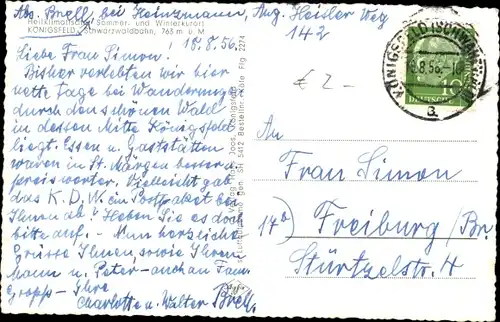 Abs. Brell, bei Heinzmann, Aug. Heisler Weg
142
Heilklimatischer Sommer- und Winterkurort
KÖNIGSFELD / Schwarzwaldbahn, 763 m ü. M
18.8.56.
Liebe Frau Simon!
Bisher verlebten wir hier
nette Tage bei Wanderungen
durch den schönen Wald
in dessen Mitte Königsfeld
liegt. Essen u. Gaststätten
waren in St. Märgen besser u.
preiswerter. Vielleicht gab
das K.D.W. ein Postpaket bei
Ihnen ab? Heben Sie es doch
bitte auf. - Nun herzliche
Grüsse Ihnen, sowie Ihrem
Mann u. Peter - auch an Fam.
Gropp - Ihre
Charlotte u. Walter Brell.
Verlag Joos, Königsfeld
SH 5412 Bestellnr. Kbg Flg 2274
£ 2 -
KÖNIGSFELD (SCHWARZW)
18.8.56
a
10
DEUTSCHE
An
Frau Simon
17b Freiburg/Br.
Stürtzelstr. 4